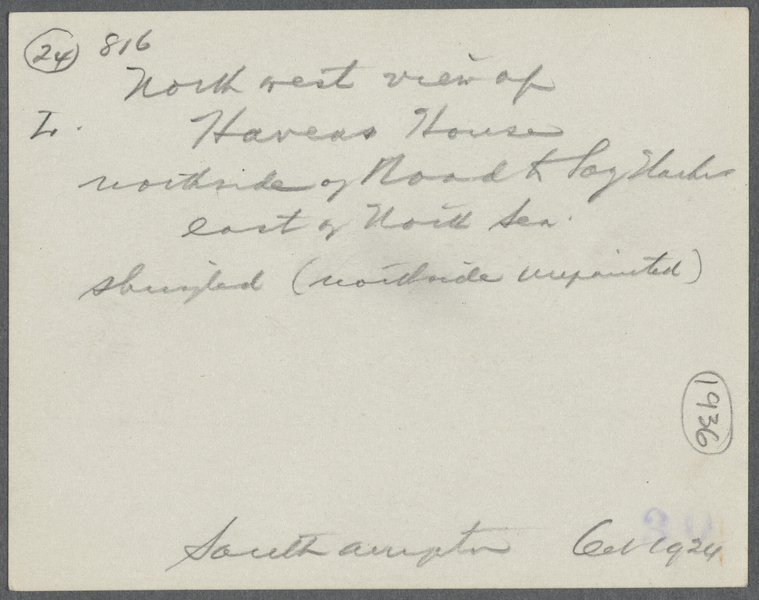 24 816
North west view of
L. Havens House
northside of Road to Sag Harbor
east of North Sea.
shingled (northside unpainted)
1936
30
Southampton Oct 1924